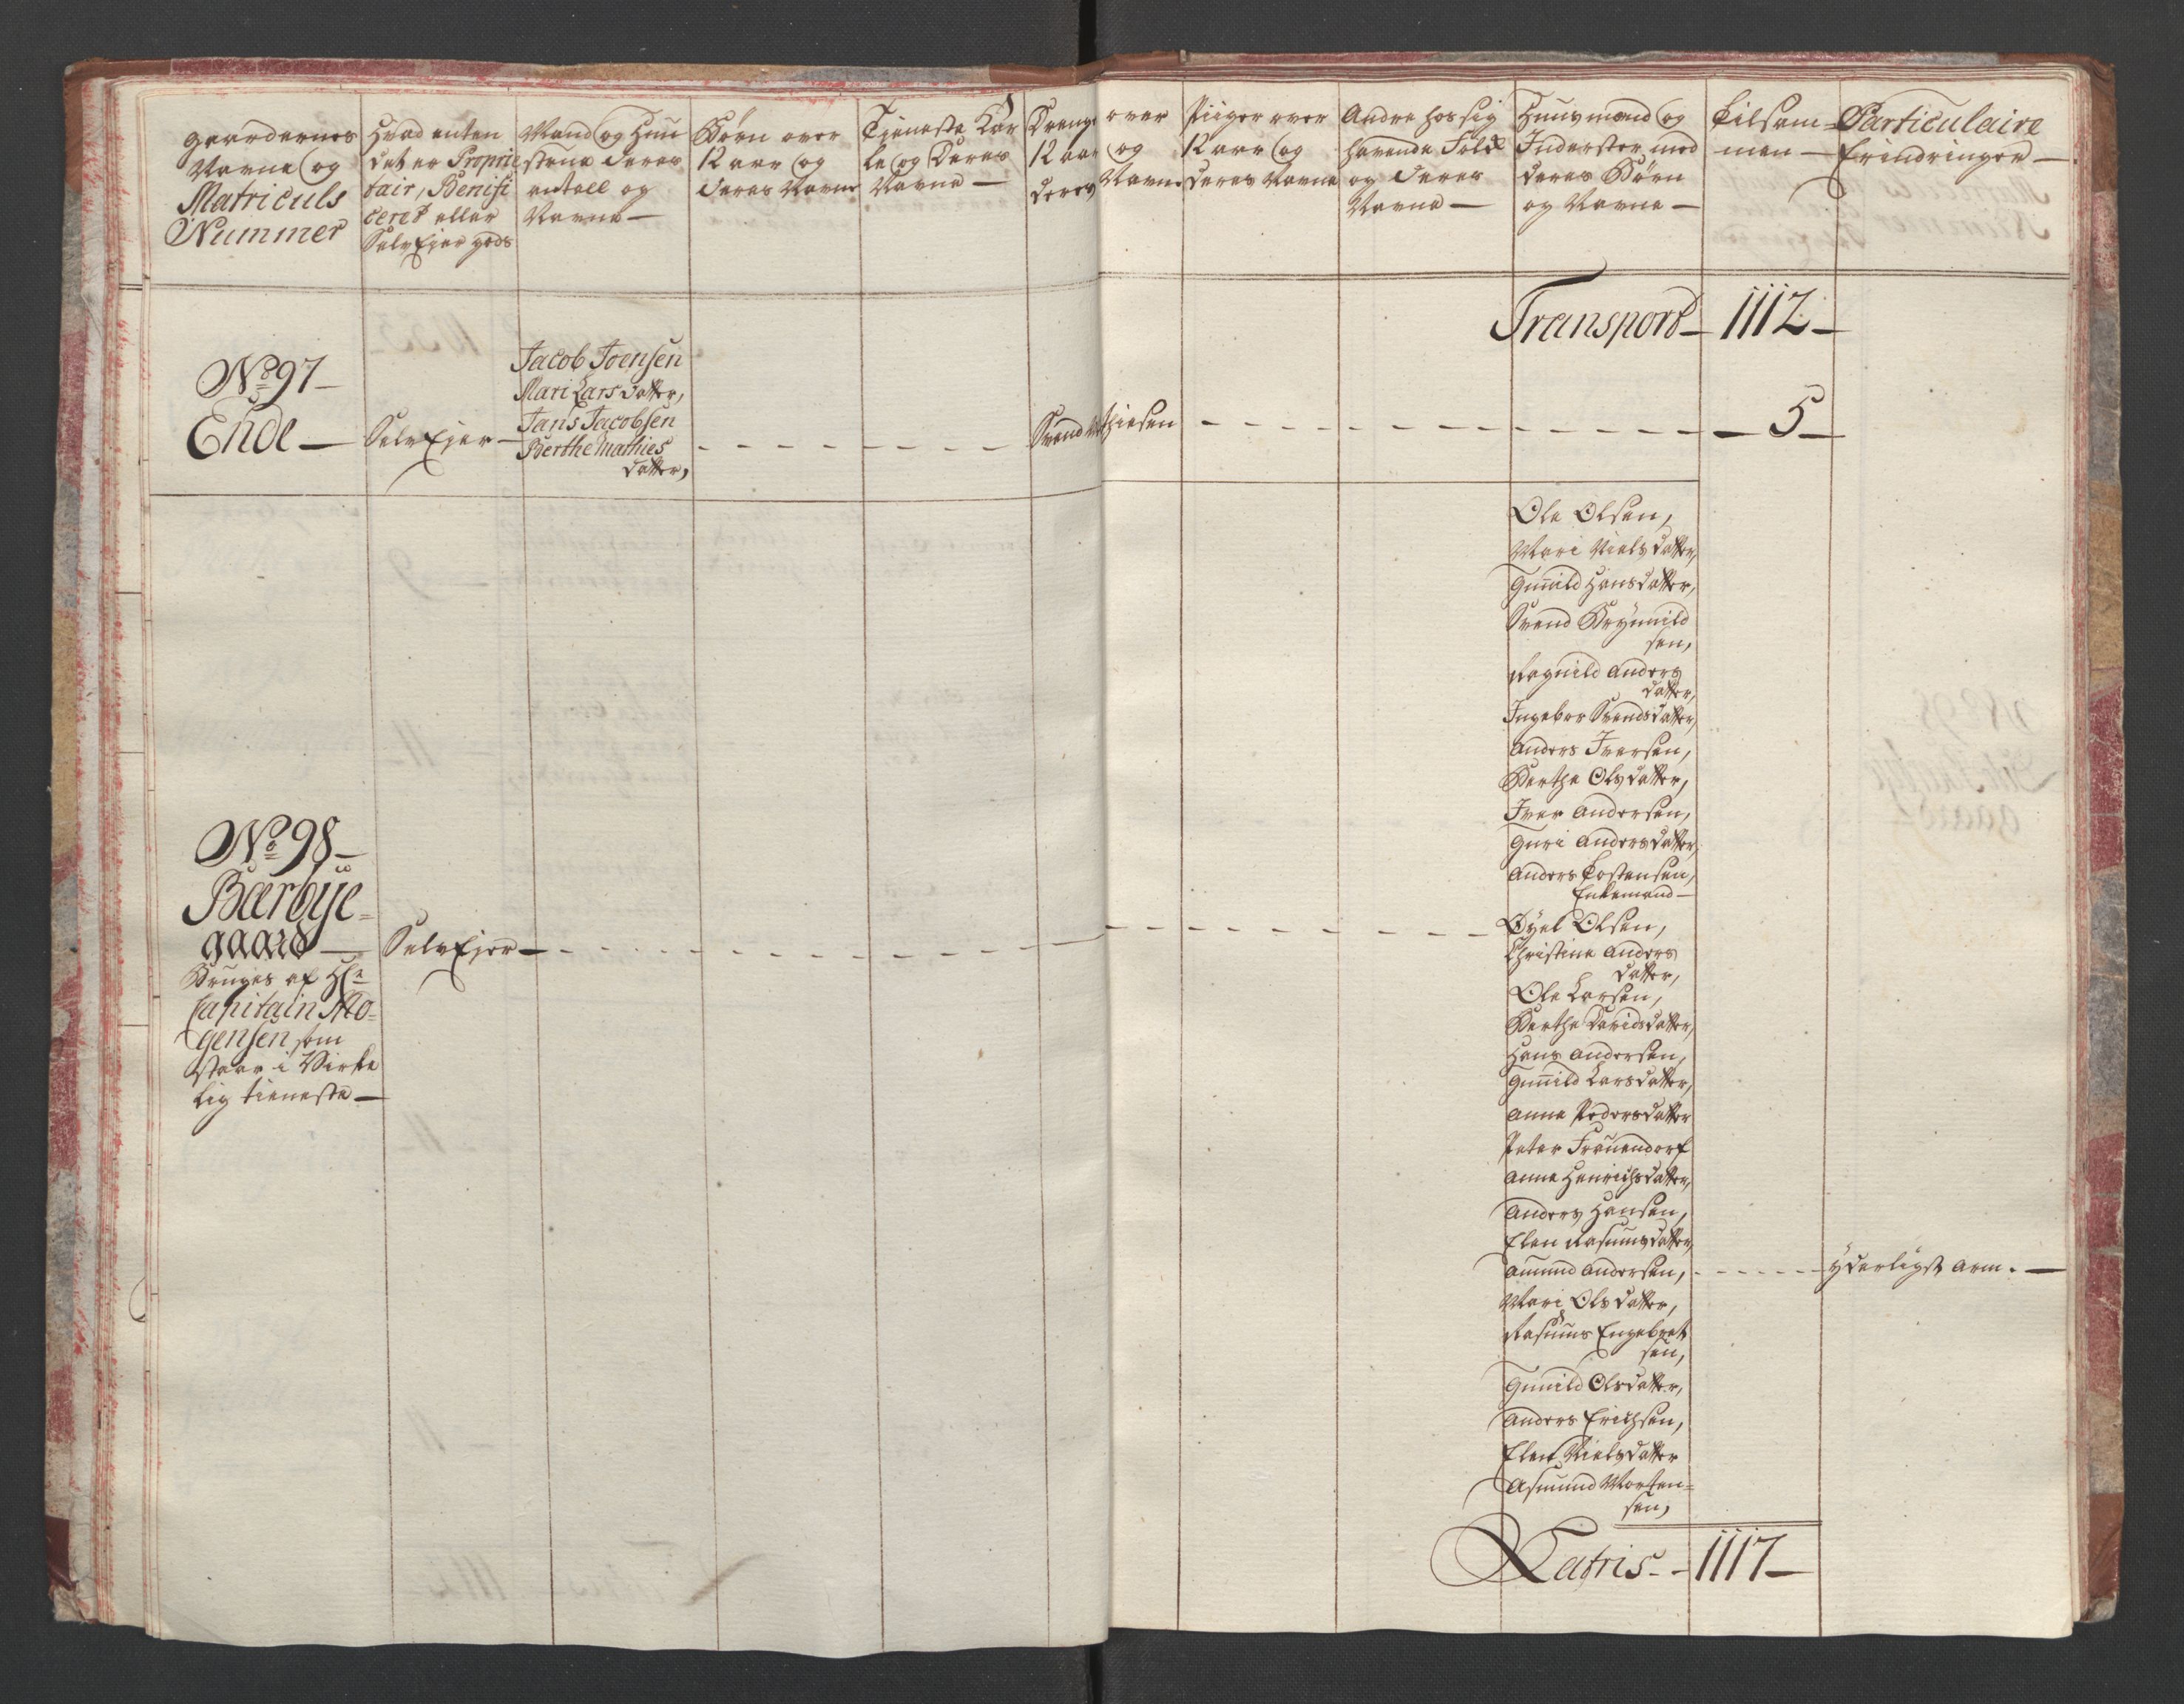 gaardernes
Navne og
Matriculs
Nummer
Hvad enten
det er Proprie
tair, Benifi
ceret eller
SelvEjer gods
Mand og Huu
strue deres
antall og
Navne —
Børn over
12 aar og
deres Navne
Tjeneste Kar
le og Deres
Navne —
Drenge over
12 aar og
deres Navne
Piiger over
12 aar og
deres Navne
Andre hos sig
havende Folk
og deres
Navne —
Huusmænd og
Inderster med
deres Børn
og Navne —
Tilsam=
men —
Particulaire
Erindringer —
Transport — 1112 —
No 97 —
Ende — SelvEjer —
Jacob Joensen
Mari Larsdatter,
Jans Jacobsen
Berthe Mathies
datter,
Svend Mathiesen
— 5 —
No 98 —
Bærbÿe=
gaard —
Bruges af Hr
Capitain Mo=
gensen som
staar i Virke
lig tieneste —
SelvEjer —
Ole Olsen,
Mari Nielsdatter,
Gunild Hansdatter,
Svend Brÿnnild
sen,
Ragnild Anders
datter,
Ingebor Svendsdatter,
Anders Iversen,
Berthe Olsdatter,
Iver Andersen,
Guri Andersdatter,
Anders Tostensen,
Enkemand —
Øyel Olsen,
Christine Anders
datter,
Ole Larsen,
Berthe Davidsdatter,
Hans Andersen,
Gunnild Larsdatter,
Anne Pedersdatter
Peter Frauendorf
Anne Henrichsdatter,
Anders Hansen,
Elen Rasmusdatter,
Amund Andersen, — yderligst arm. —
Mari Olsdatter,
Rasmus Engebret
sen,
Gunild Olsdatter,
Anders Erichsen,
Elen Nielsdatter
Asmund Morten=
sen,
Latris — 1117 —